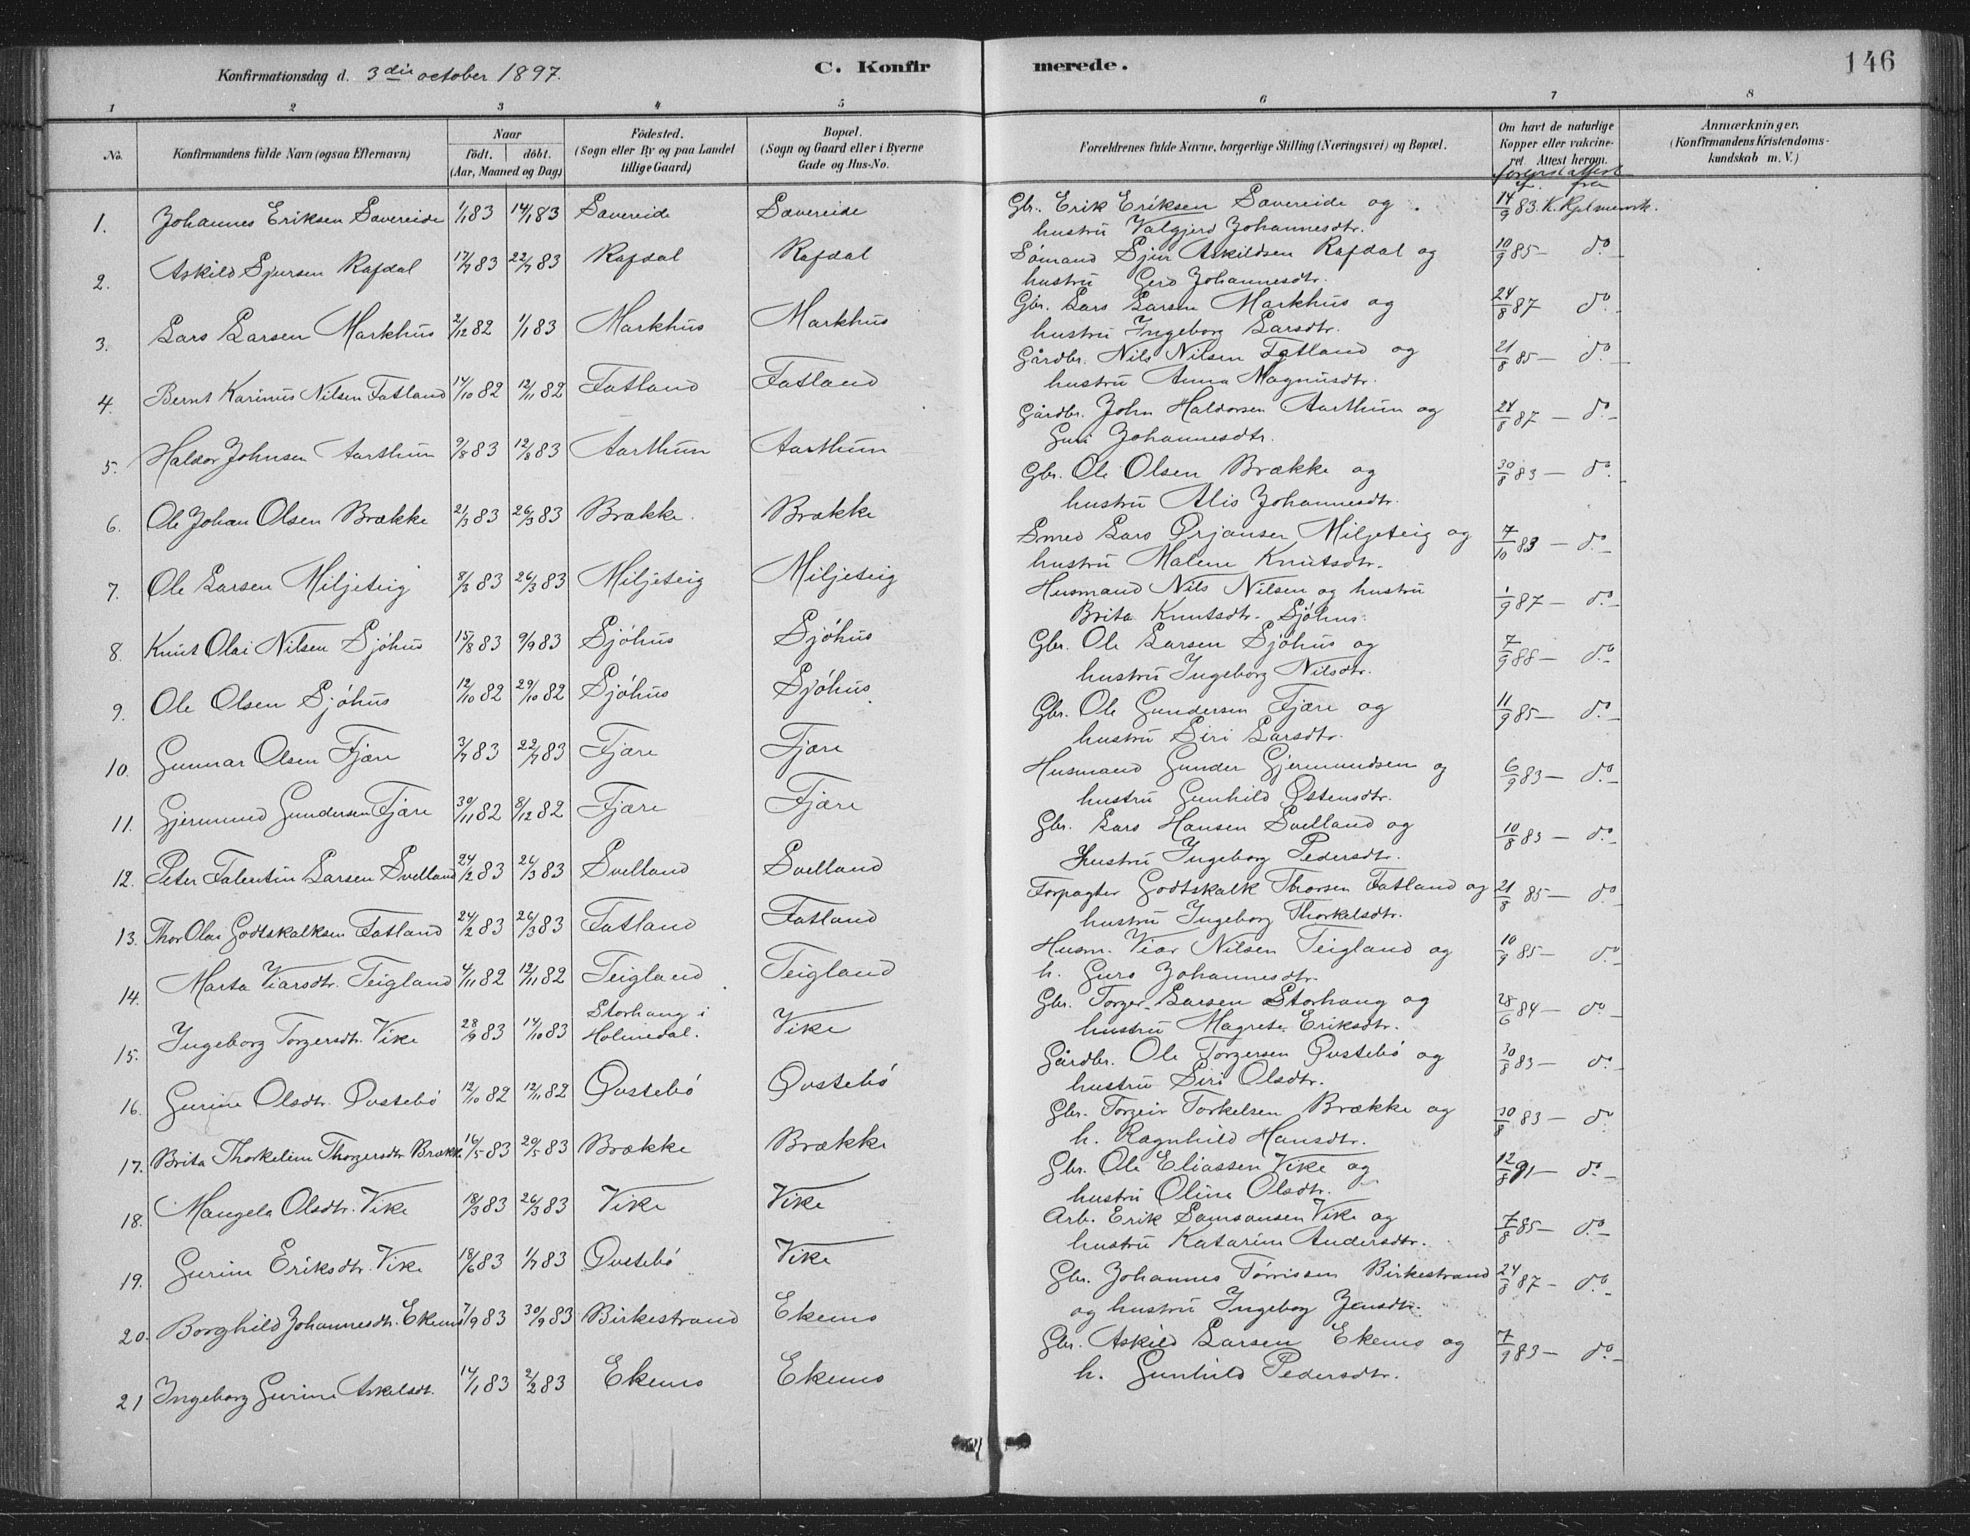 Konfirmationsdag d. 3die october 1897. C. Konfirmerede. 146
1 2 3 4 5 6 7 8
No. Konfirmandens fulde Navn (ogsaa Efternavn) Naar født. døbt. (Aar, Maaned og Dag) Fødested. (Sogn eller By og paa Landet tillige Gaard) Bopæl. (Sogn og Gaard eller i Byerne Gade og Hus-No. Forældrenes fulde Navne, borgerlige Stilling (Næringsvei) og Bopæl. Om havt de naturlige Kopper eller vakcineret. Attest herom. Anmærkninger. (Konfirmandens Kristendomskundskab m. V.)
1. Johannes Eriksen Sævereide 1/1 83 14/1 83 Sævereide Sævereide Gbr. Erik Eriksen Sævereide og hustru Valgjerd Johannesdtr. 14/9 83.
2. Askild Sjursen Rafdal 17/7 83 22/7 83 Rafdal Rafdal Sømand Sjur Askildsen Rafdal og hustru Gerd Johannesdtr. 10/9 85 — do —
3. Lars Larsen Markhus 2/12 82 1/1 83 Markhus Markhus Gbr. Lars Larsen Markhus og hustru Ingeborg Larsdtr. 24/8 87 do
4. Bernt Karinus Nilsen Fatland 14/10 82 12/11 82 Fatland Fatland Gårdbr. Nils Nilsen Fatland og hustru Anna Magnusdtr. 21/8 85 — do —
5. Haldor Johnsen Aarthun 9/8 83 12/8 83 Aarthun Aarthun Gårdbr. John Haldorsen Aarthun og Guri Johannesdtr. 24/8 87 — do —
6. Ole Johan Olsen Brække 21/3 83 26/3 83 Brække. Brække Gbr. Ole Olsen Brække og hustru Alis Johannesdtr. 30/8 83 — do
7. Ole Larsen Miljeteig 8/3 83 26/3 83 Miljeteig Miljeteig Smed Lars Ørjansen Miljeteig og hustru Malene Knutsdtr. 7/10 83 — do —
8. Knut Olai Nilsen Sjöhus 15/8 83 9/9 83 Sjöhus Sjöhus Husmand Nils Nilsen og hustru Brita Knutsdtr. Sjöhus. 1/9 87 — do —
9. Ole Olsen Sjöhus 12/10 82 29/10 82 Sjöhus Sjöhus. Gbr. Ole Larsen Sjöhus og hustru Ingeborg Nilsdtr. 7/9 88 — do —
10. Gunnar Olsen Fjære 3/7 83 22/7 83 Fjære Fjære Gbr. Ole Gundersen Fjære og hustru Siri Larsdtr. 11/9 85 — do —
11. Gjermund Gundersen Fjære 30/11 82 8/12 82 Fjære Fjære Husmand Gunder Gjermundsen og hustru Gunhild Østensdtr. 6/9 83 — do —
12. Peter Falentin Larsen Svelland 24/2 83 26/3 83 Svelland Svelland Gbr. Lars Hansen Svelland og hustru Ingeborg Pedersdtr. 10/8 83 — do —
13. Thor Olai Godtskalksen Fatland 24/2 83 26/3 83 Fatland Fatland Forpagter Godtskalk Thorsen Fatland og hustru Ingeborg Thorkelsdtr. 21/8 85 — do —
14. Marta Viarsdtr. Teigland 4/11 82 12/11 82 Teigland Teigland Husm. Viar Nilsen Teigland og h. Guro Johannesdtr. 10/9 85 — do —
15. Ingeborg Torgersdtr. Vike 28/9 83 14/10 83 Storhaug i Holmedal. Vike Gbr. Torger Larsen Storhaug og hustru Magrete Eriksdtr. 28/6 84 — do —
16. Gurine Olsdtr. Øvstebö 12/10 82 12/11 82 Øvstebö Øvstebö Gårdbr. Ole Torgersen Øvstebö og hustru Siri Olsdtr. 30/8 83 — do —
17. Brita Thorkeline Thorgersdtr. Brække 16/5 83 20/5 83 Brække Brække Gbr. Torgeir Torkelsen Brække og h. Ragnhild Hansdtr. 30/8 83 — do
18. Mangela Olsdtr. Vike 18/3 83 26/3 83 Vike Vike Gbr. Ole Eliassen Vike og hustru Oline Olsdtr. 12/8 91 — do —
19. Gurine Eriksdtr. Vike 18/6 83 1/7 83 Øvstebö Vike Arb. Erik Samsonsen Vike og hustru Katarine Andersdtr. 7/8 85 — do —
20. Borghild Johannesdtr. Ekemo 7/9 83 30/9 83 Birkestrand Ekemo Gbr. Johannes Tørrissen Birkestrand og hustru Ingeborg Jensdtr. 24/8 87 — do
21 Ingeborg Gurine Askelsdt. 14/1 83 2/2 83 Ekemo Ekemo Gbr. Askild Larsen Ekemo og h. Gunhild Pedersdtr. 7/9 83 — do —